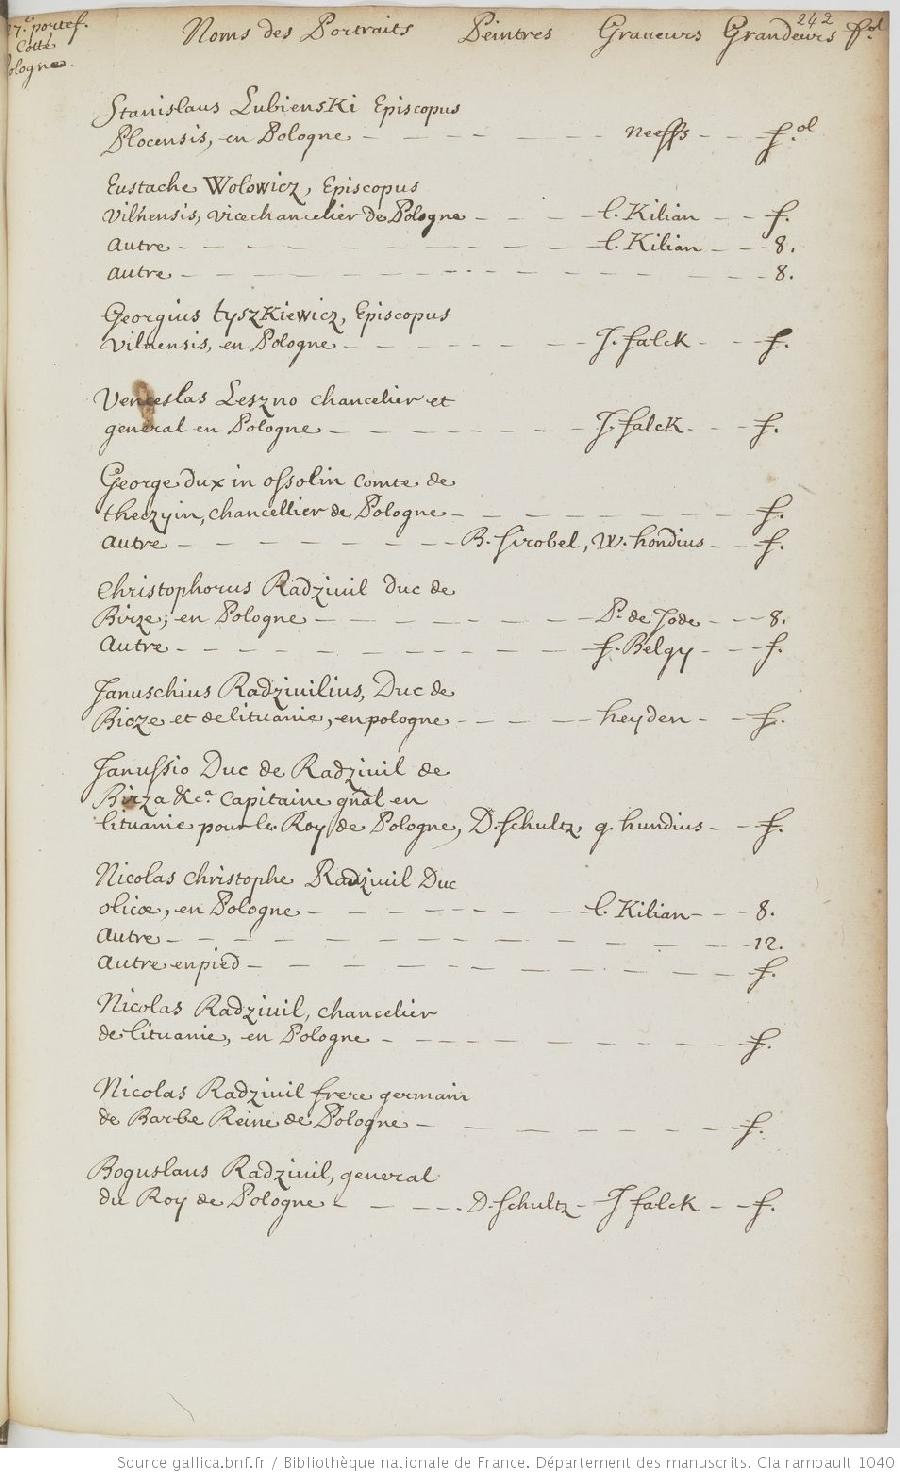 17.e portef.
Cotté
Pologne.
242
Noms des Portraits Peintres Graveurs Grandeurs fol
Stanislaus Lubienski Episcopus
Plocensis, en Pologne - - - - - neeffs - - - f.ol
Eustache Wolowicz, Episcopus
Vilnensis, vicechancelier de Pologne - - - l. Kilian - - f.
Autre - - - - - - l. Kilian - - 8.
Autre - - - - - - - - - 8.
Georgius tyszKiewicz, Episcopus
Vilnensis, en Pologne - - - - - J. falck - - f.
Venceslas Leszno chancelier et
general en Pologne - - - - - J. falck - - f.
George dux in ossolin comte de
theczyin, chancellier de Pologne - - - - - - f.
Autre - - - - - B. Strobel, W. hondius - - f.
Christophorus Radzivil Duc de
Birze, en Pologne - - - - - P. de Jode - - 8.
Autre - - - - - - f. Belgy - - f.
Januschius Radzivilius, Duc de
Bicze et de lituanie, en pologne - - - - heyden - - f.
Janussio Duc de Radzivil de
Birza &c.a Capitaine gñal en
lituanie pour le Roy de Pologne, D. Schultz, g. hundius - - f.
Nicolas christophe Radzivil Duc
olicæ, en Pologne - - - - - l. Kilian - - 8.
Autre - - - - - - - - - 12.
Autre en pied - - - - - - - - f.
Nicolas Radzivil, chancelier
de lituanie, en Pologne - - - - - - - f.
Nicolas Radzivil frere germain
de Barbe Reine de Pologne - - - - - - f.
Boguslaus Radzivil, general
du Roy de Pologne - - - - D. Schultz - J falck - - f.
Source gallica.bnf.fr / Bibliothèque nationale de France. Département des manuscrits. Clairambault 1040